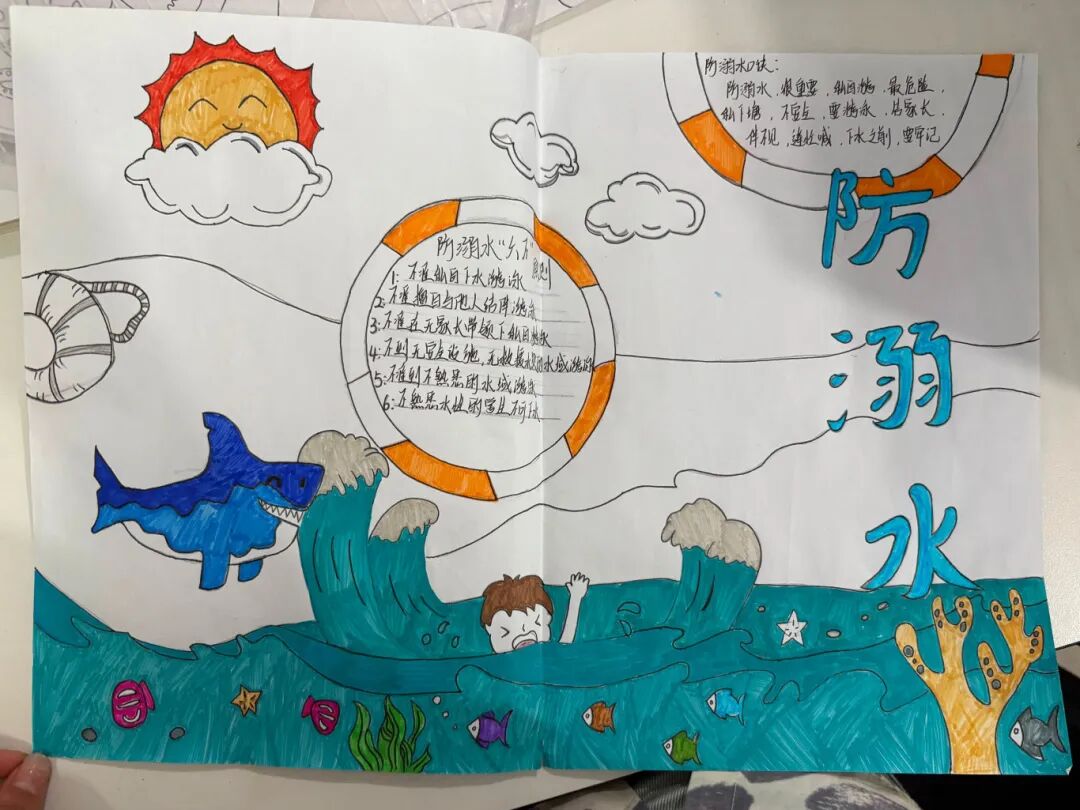 防溺水口诀:
防溺水,很重要,私自游,最危险,
私下塘,不要去,要游泳,告家长,
伴不见,连忙喊,下水之前,要牢记
防溺水“六不”原则
1:不准私自下水游泳
2:不准擅自与他人结伴游泳
3:不准在无家长带领下私自游泳
4:不到无安全设施,无救援人员的水域游泳
5:不准到不熟悉的水域游泳
6:不熟悉水性的学生不可下水
防溺水